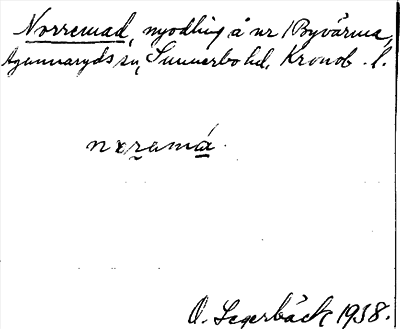 Norremad, nyodling å nr 1 Byvärma,
Agunnaryds sn, Sunnerbo hd, Kronob. l.
nɤramá.
O. Segerbäck 1938.